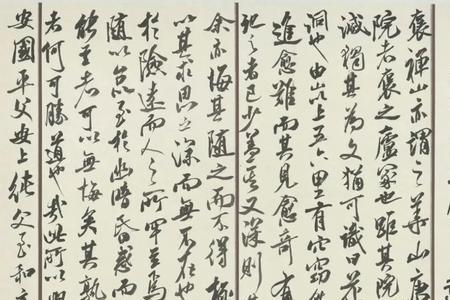 褒禪山亦謂之華山唐
院者褒之廬冢也距其院
滅獨其為文猶可識曰花
洞也由山以上五六里有穴窈
進愈難而其見愈奇有
記之者已少蓋其又深則
余亦悔其隨之而不得極
以其求思之深而無不在也
於險遠而人之所罕至焉
隨以怠至於幽暗昏惑而
能至者可以無悔矣其孰
者何可勝道也哉此所以
安國平父安上純父至和